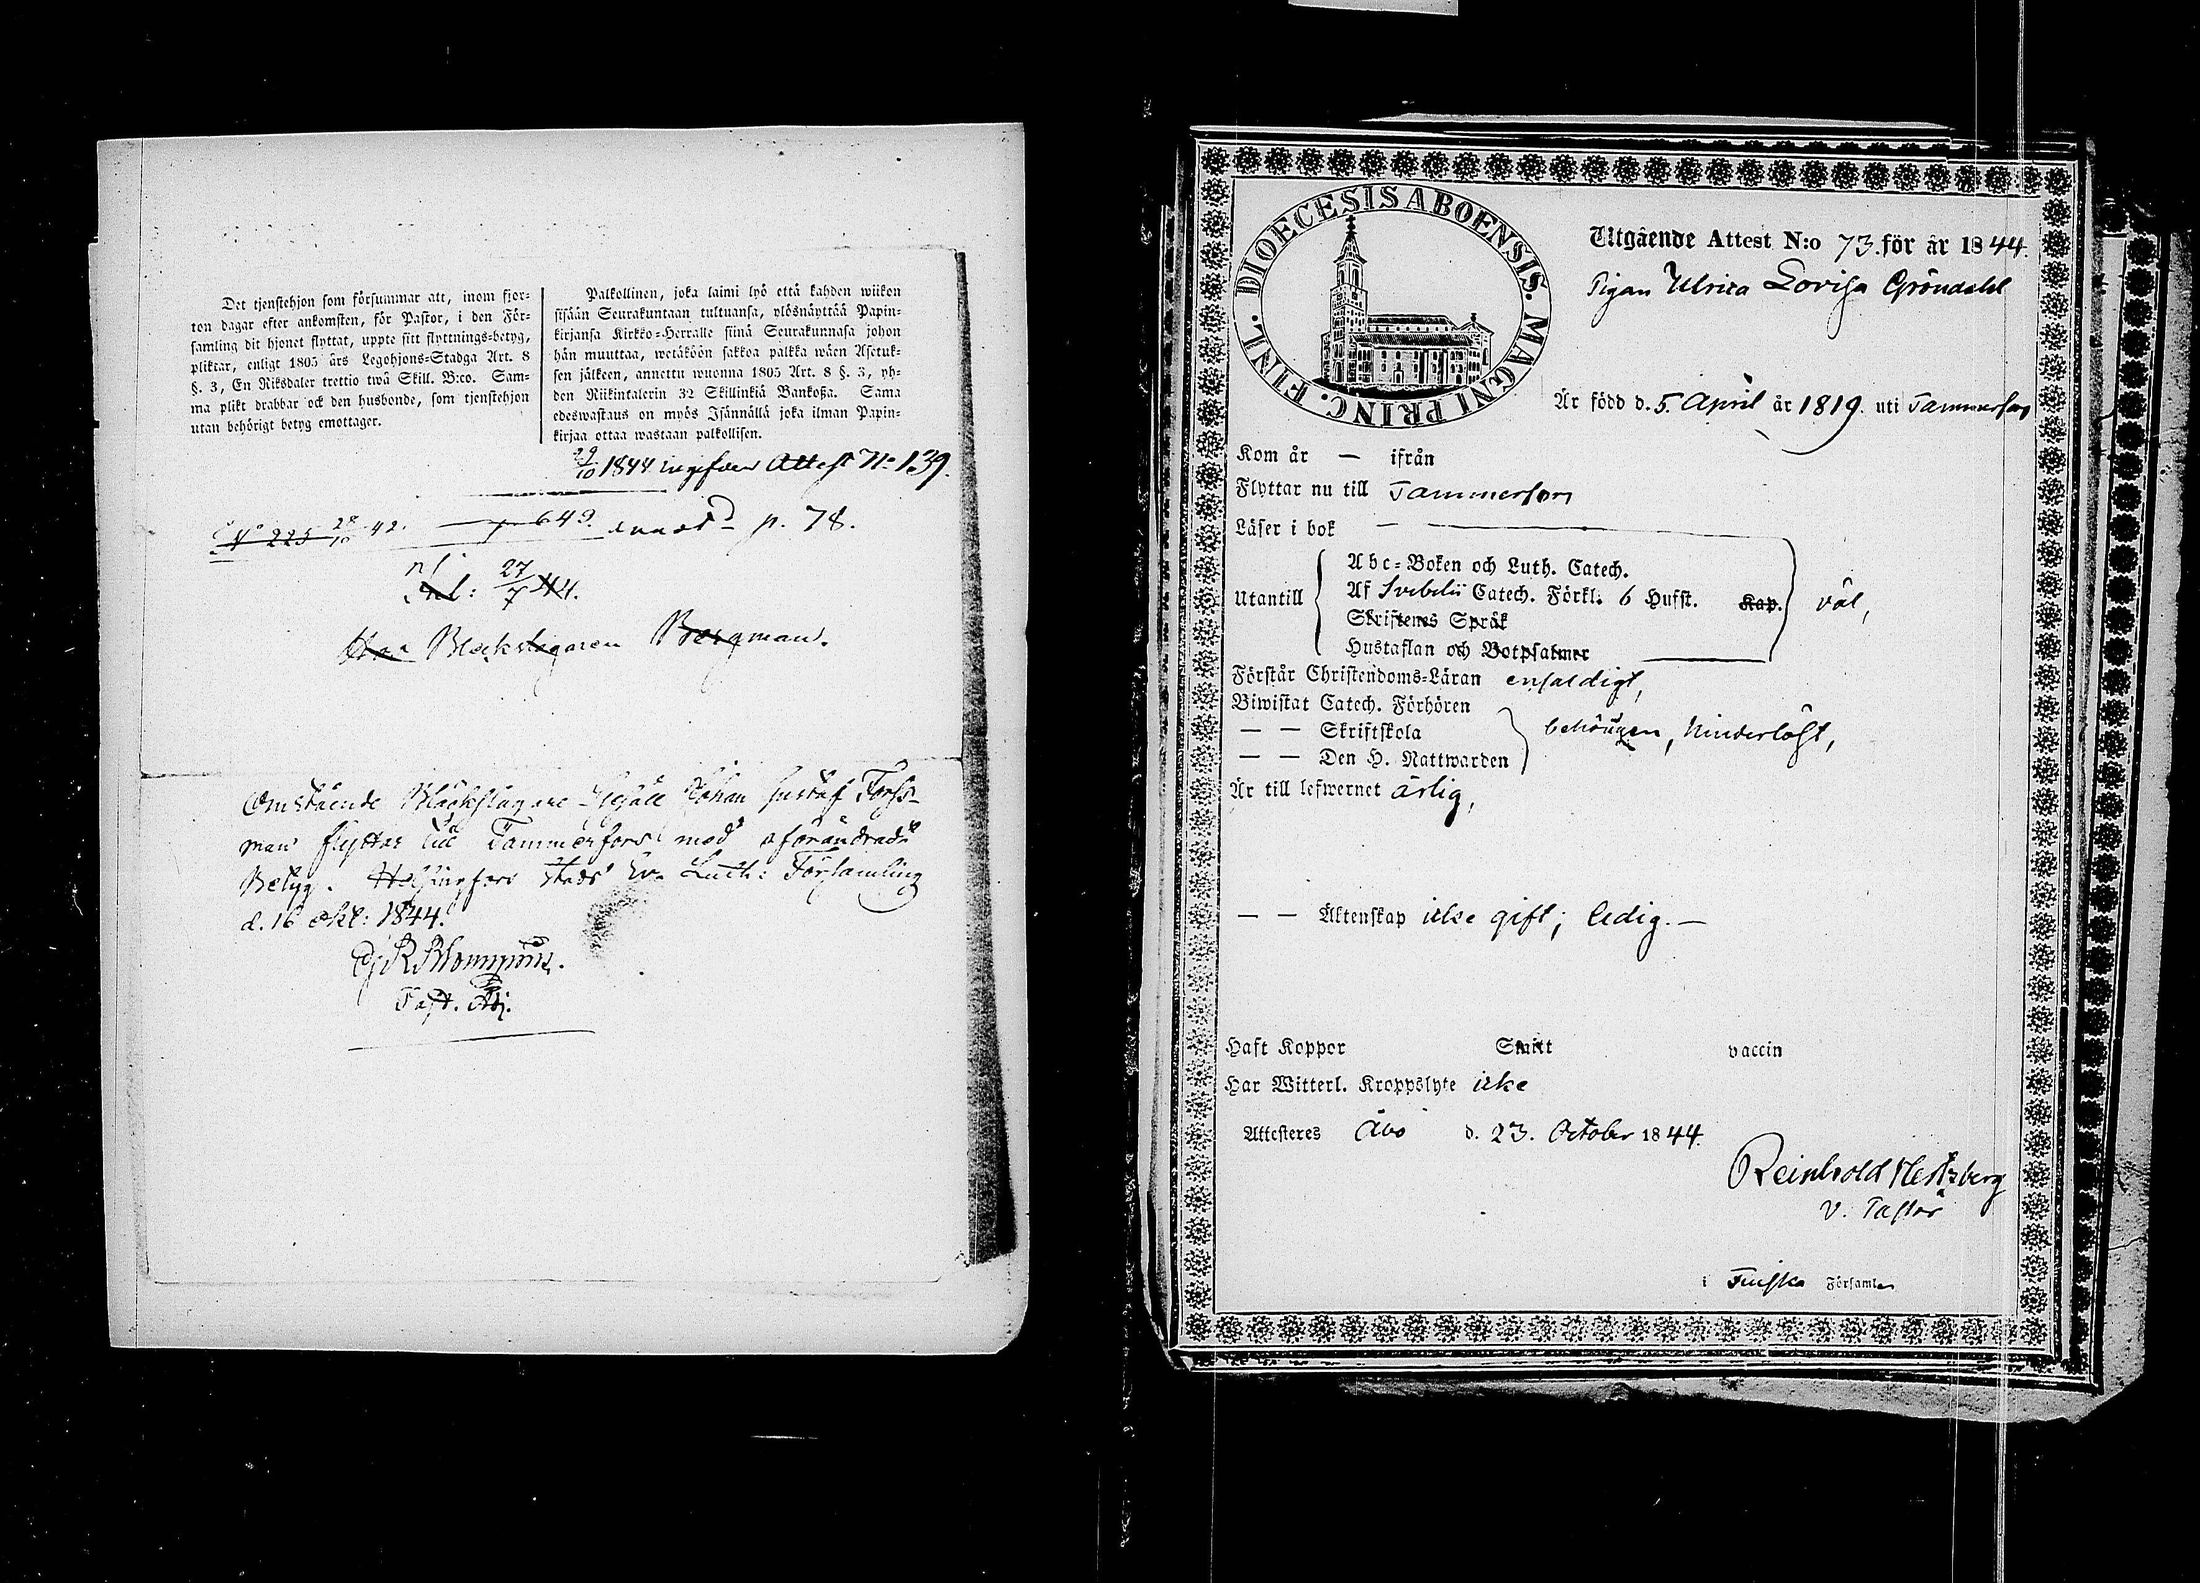 Det tjenstehjon som försummar att, inom fjor-
ton dagar efter ankomsten, för Pastor, i den För-
samling dit hjonet flyttat, uppte sitt flyttnings-betyg,
pliktar, enligt 1805 års Legohjons-Stadga Art. 8
§. 3, En Riksdaler trettio twå Skill. B:co. Sam-
ma plikt drabbar ock den husbonde, som tjenstehjon
utan behörigt betyg emottager.
Palkollinen, joka laimi lyö että kahden wiikon
sisään Seurakuntaan tultuansa, ylösnäyttää Papin-
kirjansa Kirkko-Herralle siinä Seurakunnasa johon
hän muuttaa, wetäköön sakkoa palkka wäen Asetuk-
sen jälkeen, annettu wuonna 1805 Art. 8 §. 3, yh-
den Riikintalerin 32 Skillinkiä Bankoßa. Sama
edeswastaus on myös Isännällä joka ilman Papin-
kirjaa ottaa wastaan palkollisen.
29/10 1844 ingifven Attest No 139.
No 225 28/10 42. p 649. p. 78.
27/7 44.
Hos Bleckslagaren Bergman.
Omstående Bläckslagare Gesäll Johan Gustaf Forss-
man flyttar till Tammerfors med oförändradt
Betyg. Helsingfors Stads Ev. Luth: Församling
d. 16 Okt: 1844.
Past. Adj.
DIOECESIS ABOENSIS. MAGNI PRINC. FINL.
Utgående Attest N:o 73 för år 1844.
Pigan Ulrica Lovisa Gröndahl
Är född d. 5. April år 1819. uti Tammerfors
Kom år — ifrån
Flyttar nu till Tammerfors
Läser i bok —
Utantill
Abc-Boken och Luth. Catech.
Af Svebelii Catech. Förkl. 6 Hufst. Kap.
Skriftenes Språk
Hustaflan och Botpsalmer
väl,
Förstår Christendoms-Läran enfaldigt,
Biwistat Catech. Förhören
— — Skriftskola
— — Den H. Nattwarden
behörigen, hinderlöst,
Är till lefwernet ärlig,
— — Äktenskap icke gift; ledig. —
Haft Koppor Smitt vaccin
Har Witterl. Kroppslyte icke
Attesteres Åbo d. 23. October 1844.
Reinhold Hertzberg
V. Pastor
i Finska Församl.